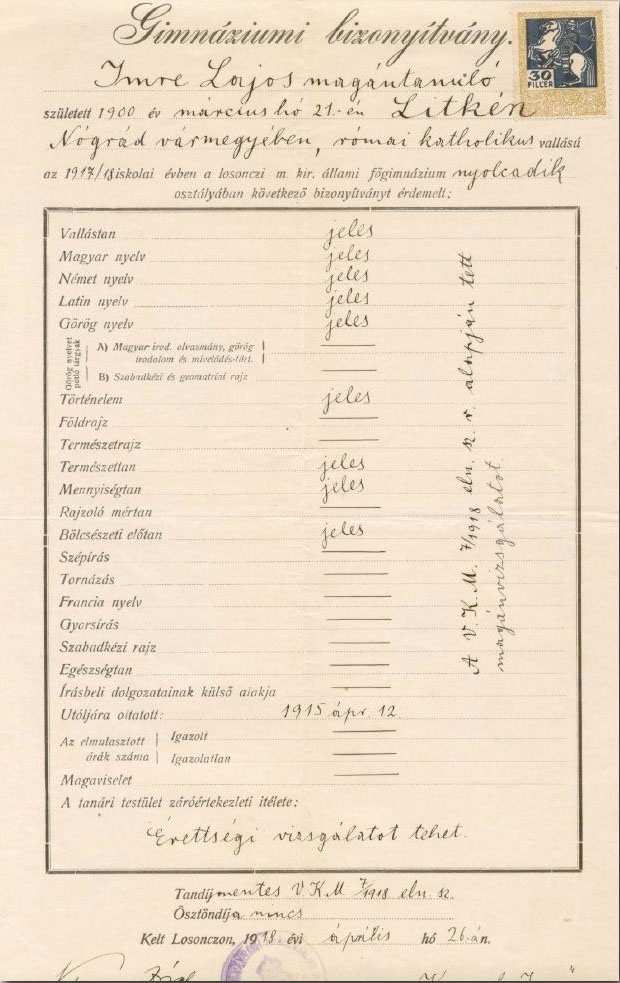 Gimnáziumi bizonyítvány.
30
FILLÉR
Imre Lajos magántanuló
született 1900 év március hó 21.-én Litkén
Nógrád vármegyében, római katholikus vallású
az 1917/18 iskolai évben a losonczi m. kir. állami főgimnázium nyolcadik
osztályában következő bizonyítványt érdemelt:
Vallástan jeles
Magyar nyelv jeles
Német nyelv jeles
Latin nyelv jeles
Görög nyelv jeles
Görög nyelvet pótló tárgyak
A) Magyar irod. olvasmány, görög
irodalom és mivelődés-tört. —
B) Szabadkézi és geometriai rajz —
Történelem jeles
Földrajz —
Természetrajz —
Természettan jeles
Mennyiségtan jeles
Rajzoló mértan —
Bölcsészeti előtan jeles
Szépírás —
Tornázás —
Francia nyelv —
Gyorsírás —
Szabadkézi rajz —
Egészségtan —
Írásbeli dolgozatainak külső alakja —
Utóljára oltatott: 1915 ápr. 12.
Az elmulasztott órák száma
Igazolt —
Igazolatlan —
Magaviselet —
A V. K. M. 7/1918 eln. sz. r. alapján tett
magánvizsgálatot.
A tanári testület záróértekezleti ítélete:
Érettségi vizsgálatot tehet.
Tandíjmentes V. K. M 7/1918 eln. sz.
Ösztöndíja nincs
Kelt Losonczon, 1918. évi április hó 26-án.